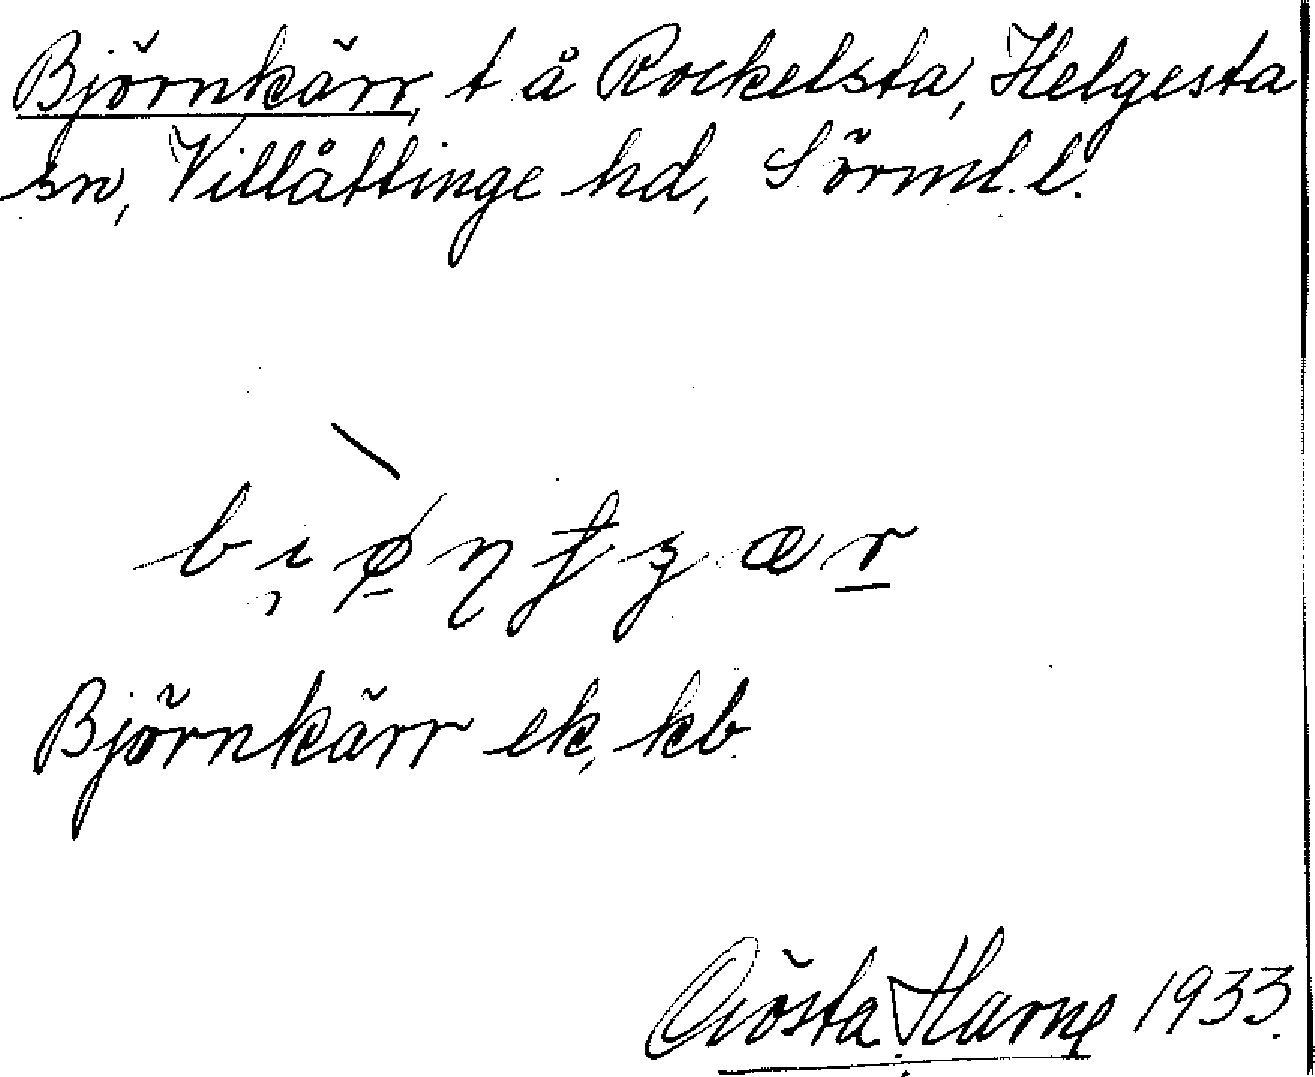 Björnkärr, t å Rockelsta, Helgesta
sn, Villåttinge hd, Sörml. l.
Björnkärr ek, kb.
Gösta Harne 1933.